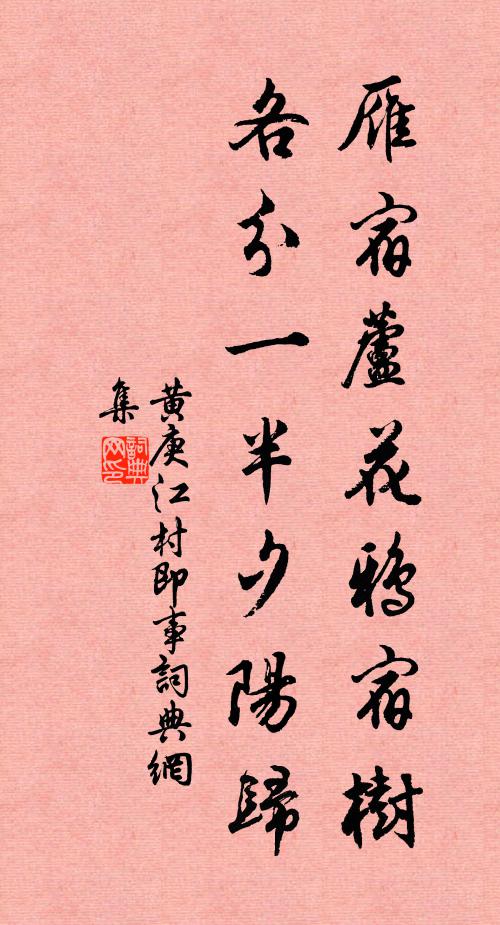 雁宿蘆花鴉宿樹
各分一半夕陽歸
黄庚江村即事詞典網
集
詞典
网印